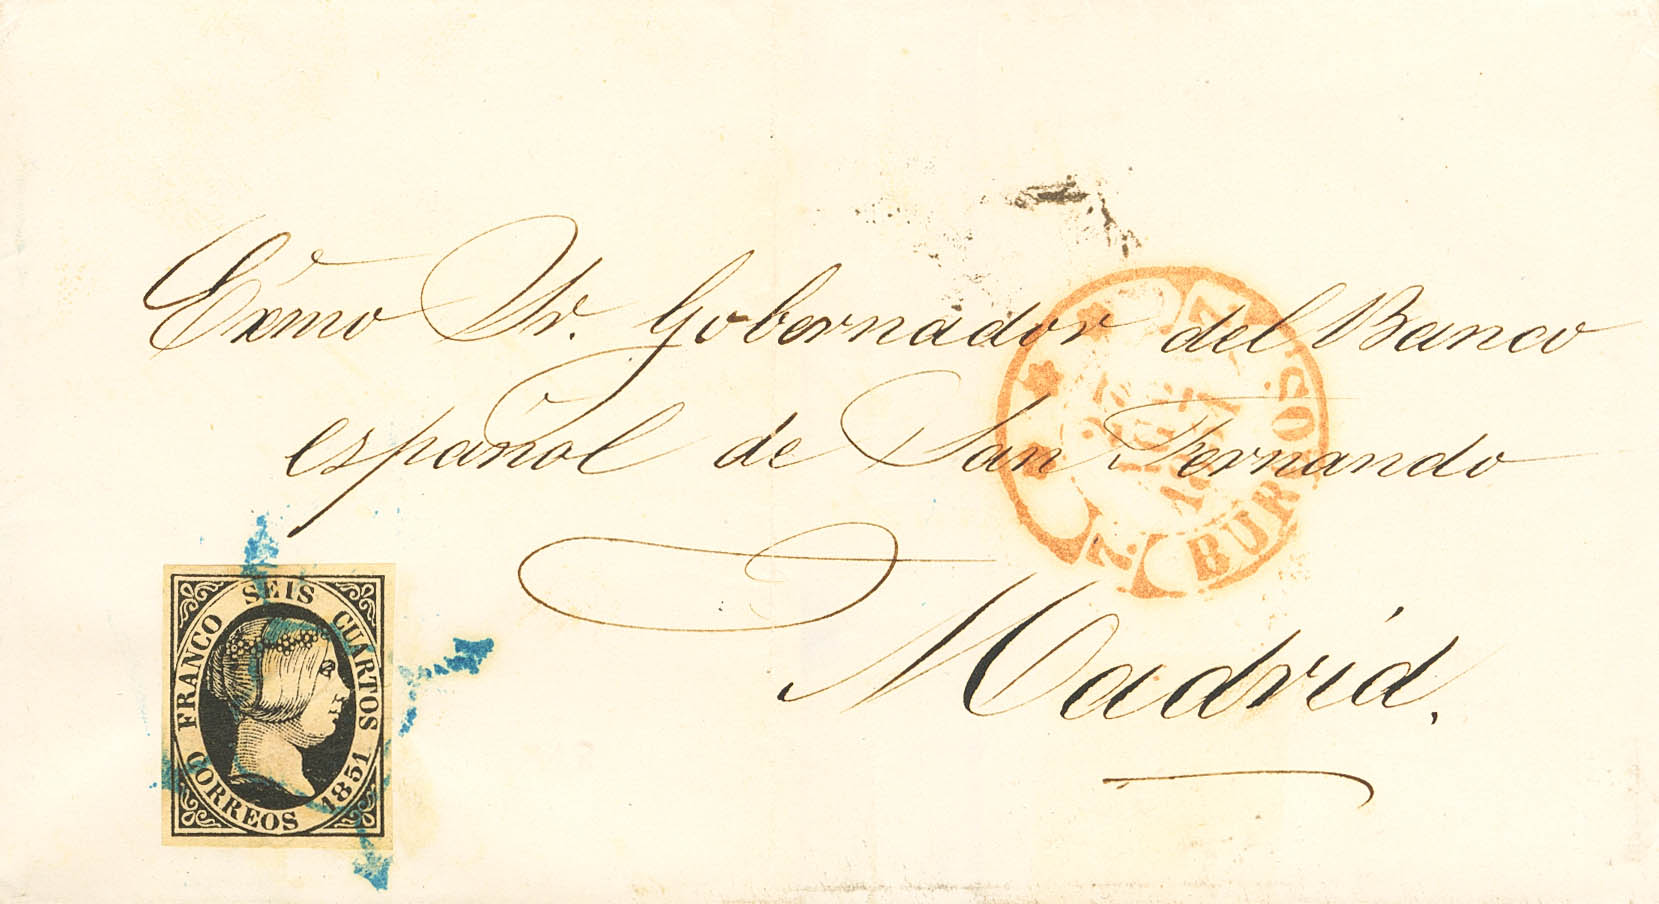 Exmo Sr. Gobernador del Banco
español de San Fernando
Madrid.
FRANCO SEIS CUARTOS
CORREOS 1851
BURGOS.
1851